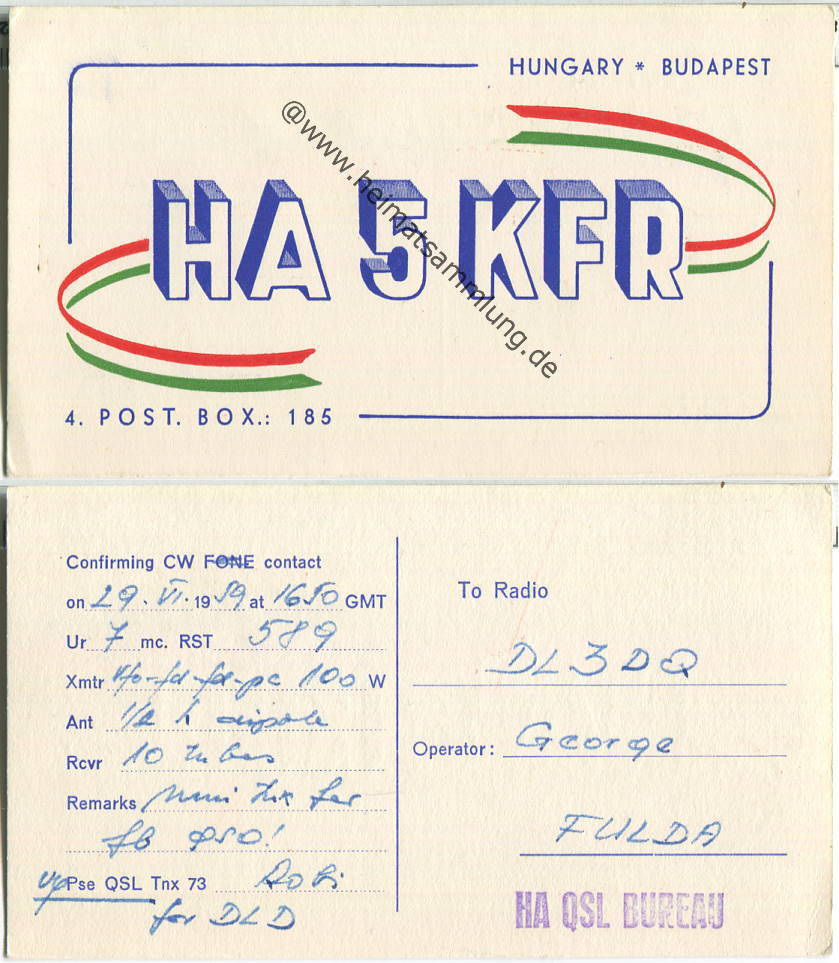 HUNGARY * BUDAPEST
@www.heimatsammlung.de
HA 5 KFR
4. POST. BOX.: 185
Confirming CW FONE contact
on 29. VI. 1959 at 1650 GMT
Ur 7 mc. RST 589
Xmtr vfo-fd-fd-pa 100 W
Ant 1/2 λ dipole
Rcvr 10 tubes
Remarks Mni tnx for
fb QSO!
Pse QSL Tnx 73 Robi
for DLD
To Radio
DL3DQ
Operator: George
FULDA
HA QSL BUREAU